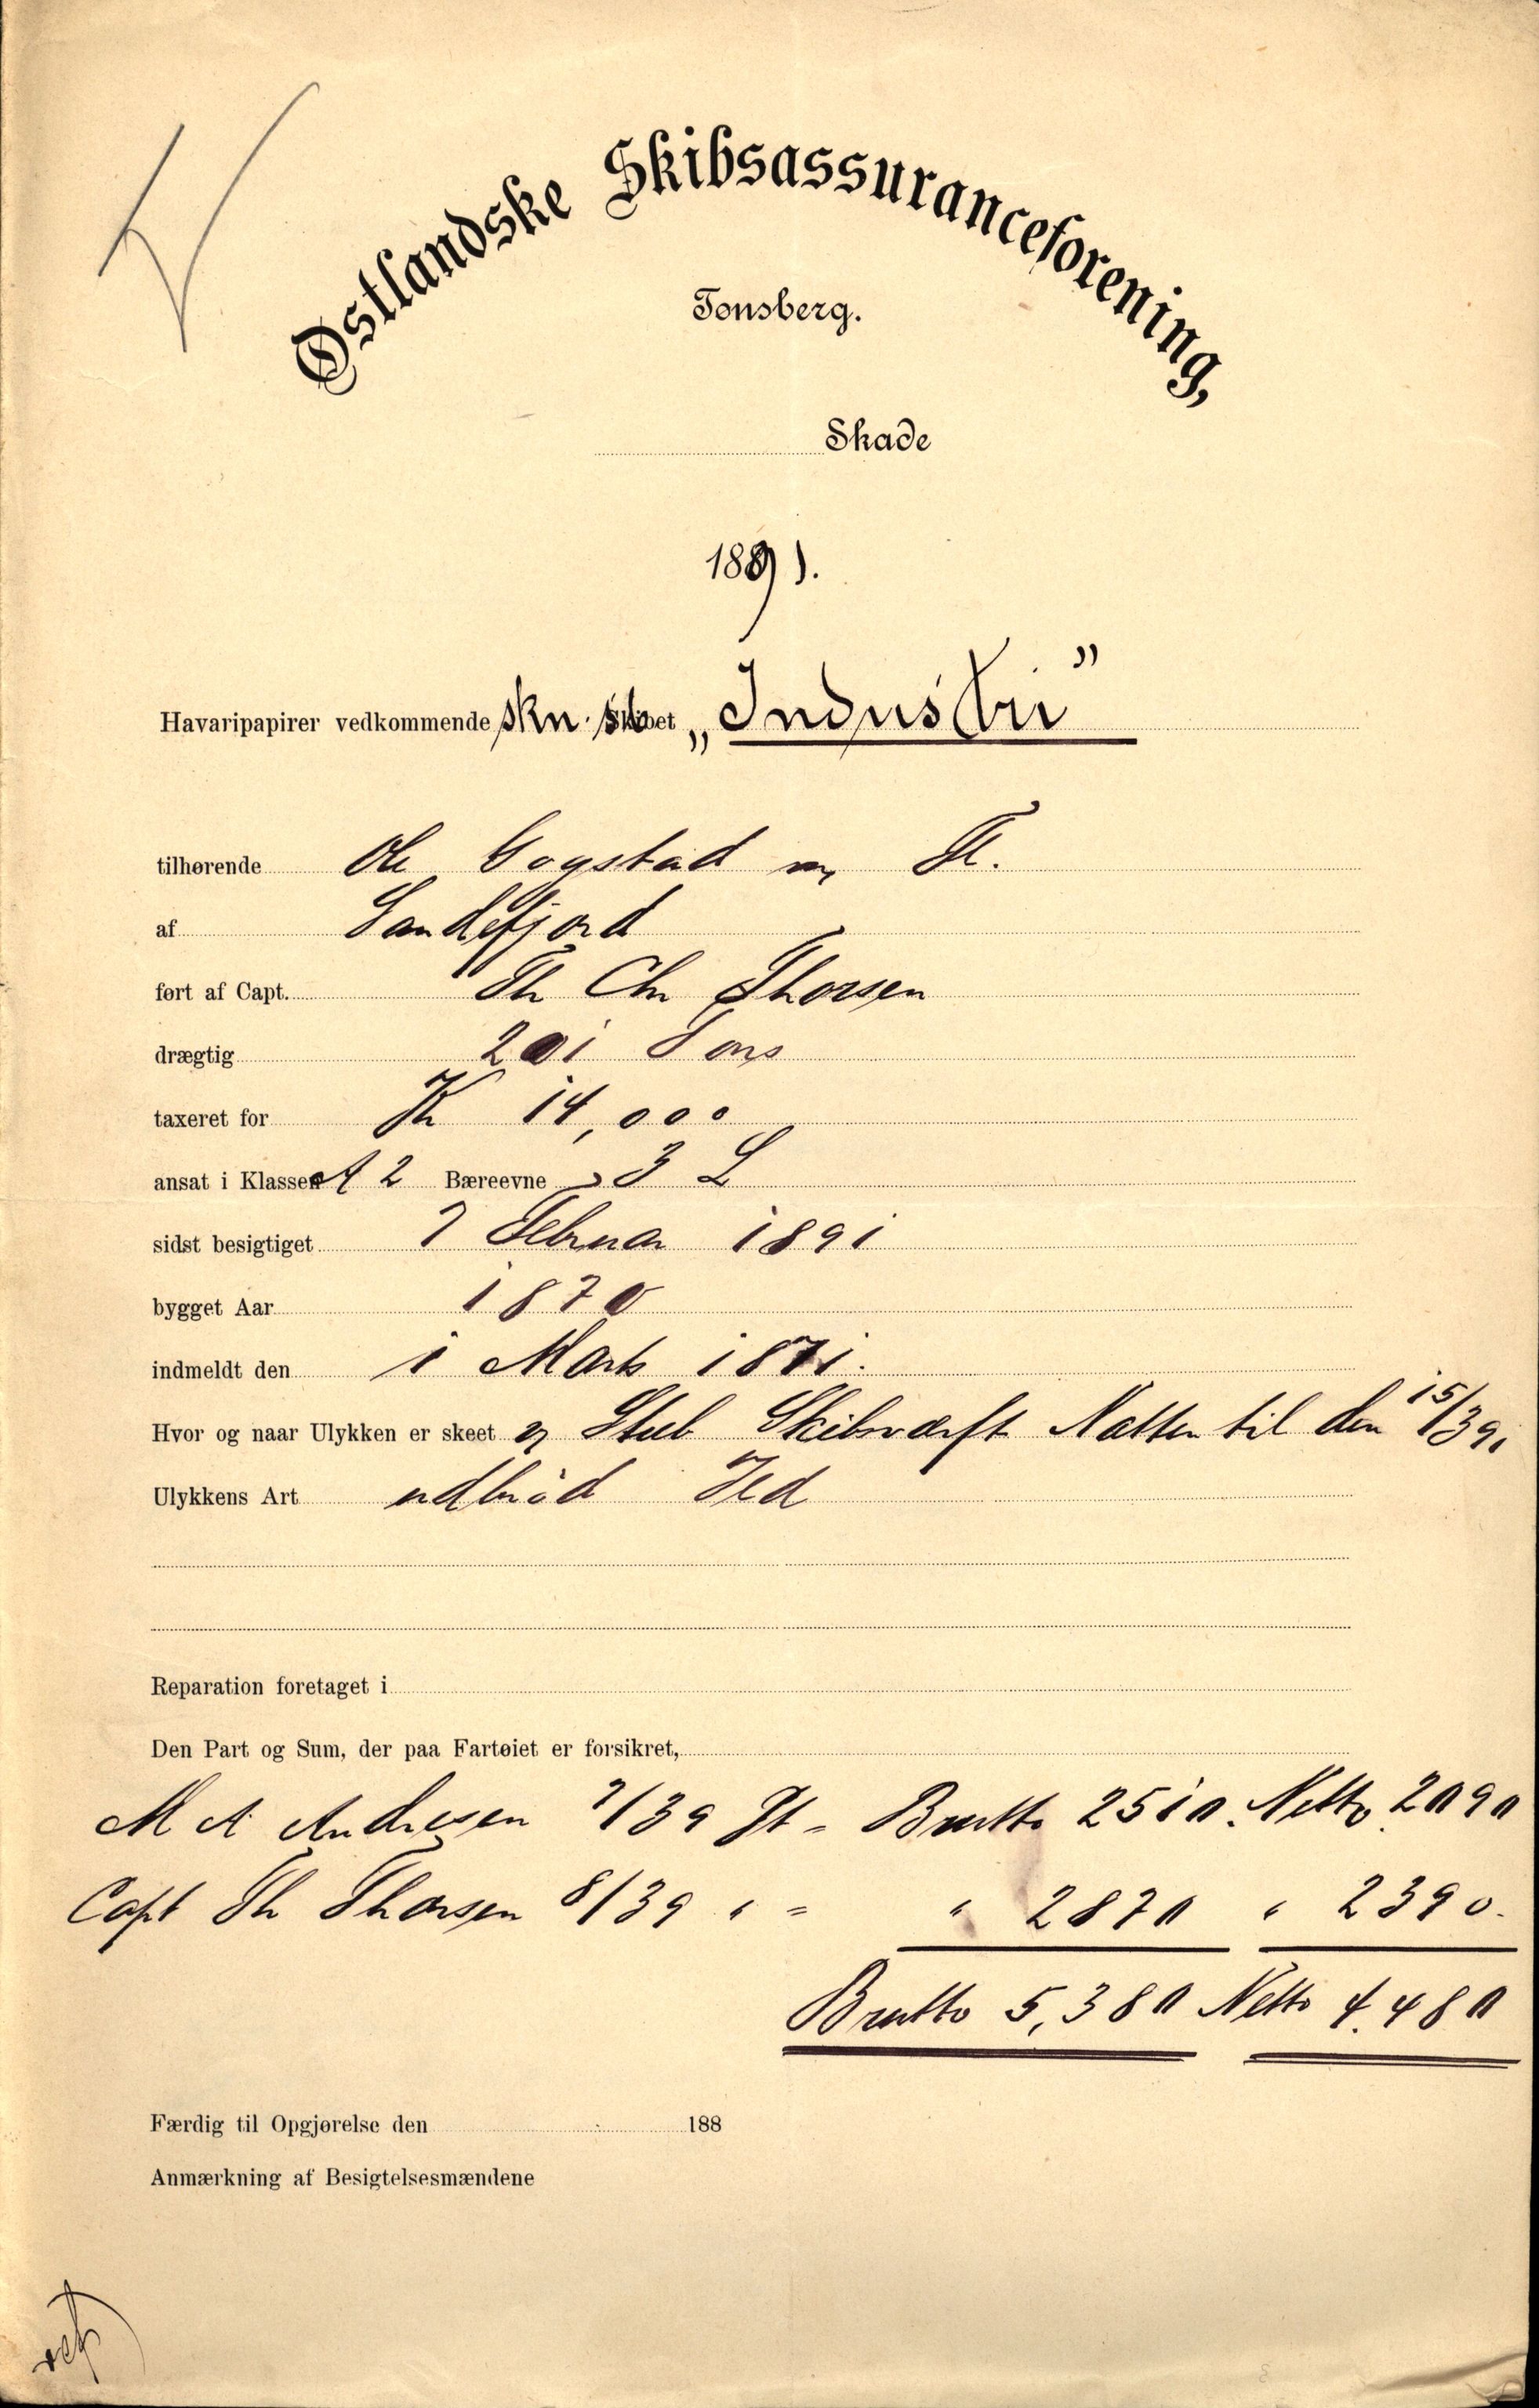 Østlandske Skibsassuranceforening,
Tønsberg.
Skade
1891.
Havaripapirer vedkommende Skn. Sk „Industri”
tilhørende Ole Gogstad m Fl.
af Sandefjord
ført af Capt. Th Chr Thorsen
drægtig 201 Tons
taxeret for Kr 14,000
ansat i Klassen A 2 Bæreevne 3 L
sidst besigtiget 7 Februar 1891
bygget Aar 1870
indmeldt den 1 Marts 1871.
Hvor og naar Ulykken er skeet Stub Skibsværft Natten til den 15/3 91
Ulykkens Art udbrød Ild
Reparation foretaget i
Den Part og Sum, der paa Fartøiet er forsikret,
M A Andresen 7/39 Pt - Brutto 2510. Netto 2090
Capt Th Thorsen 8/39 " = " 2870 " 2390.
Brutto 5,380 Netto 4.480
Færdig til Opgjørelse den 188
Anmærkning af Besigtelsesmændene